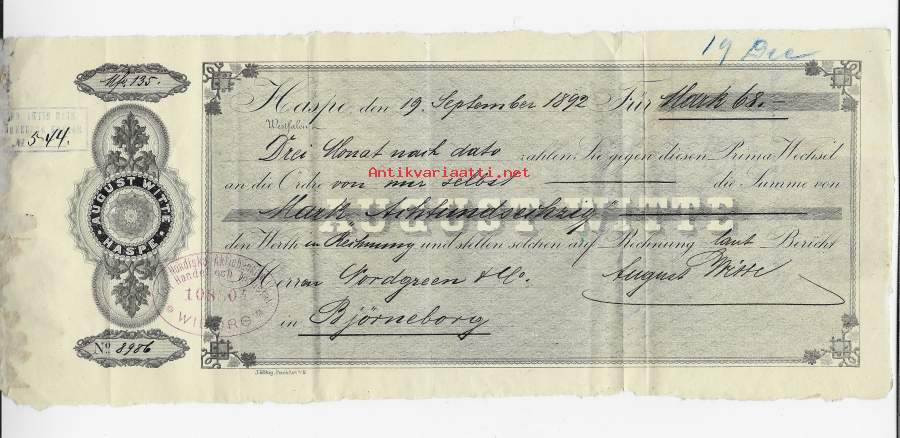 19 Dec
Mk 135.-
544.
AUGUST WITTE
HASPE
Nordiska Aktiebanken
Handel och
WIBORG
No 8986
Haspe, den 19. September 1892 Für Mark 68.-
Westfalen
Drei Monat nach dato zahlen Sie gegen diesen Prima Wechsel
Antikvariaatti.net
an die Ordre von mir selbst die Summe von
Mark Achtundsechzig
AUGUST WITTE
den Werth in Rechnung und stellen solchen auf Rechnung laut Bericht
Herren Nordgreen & Co. August Witte
in Björneborg